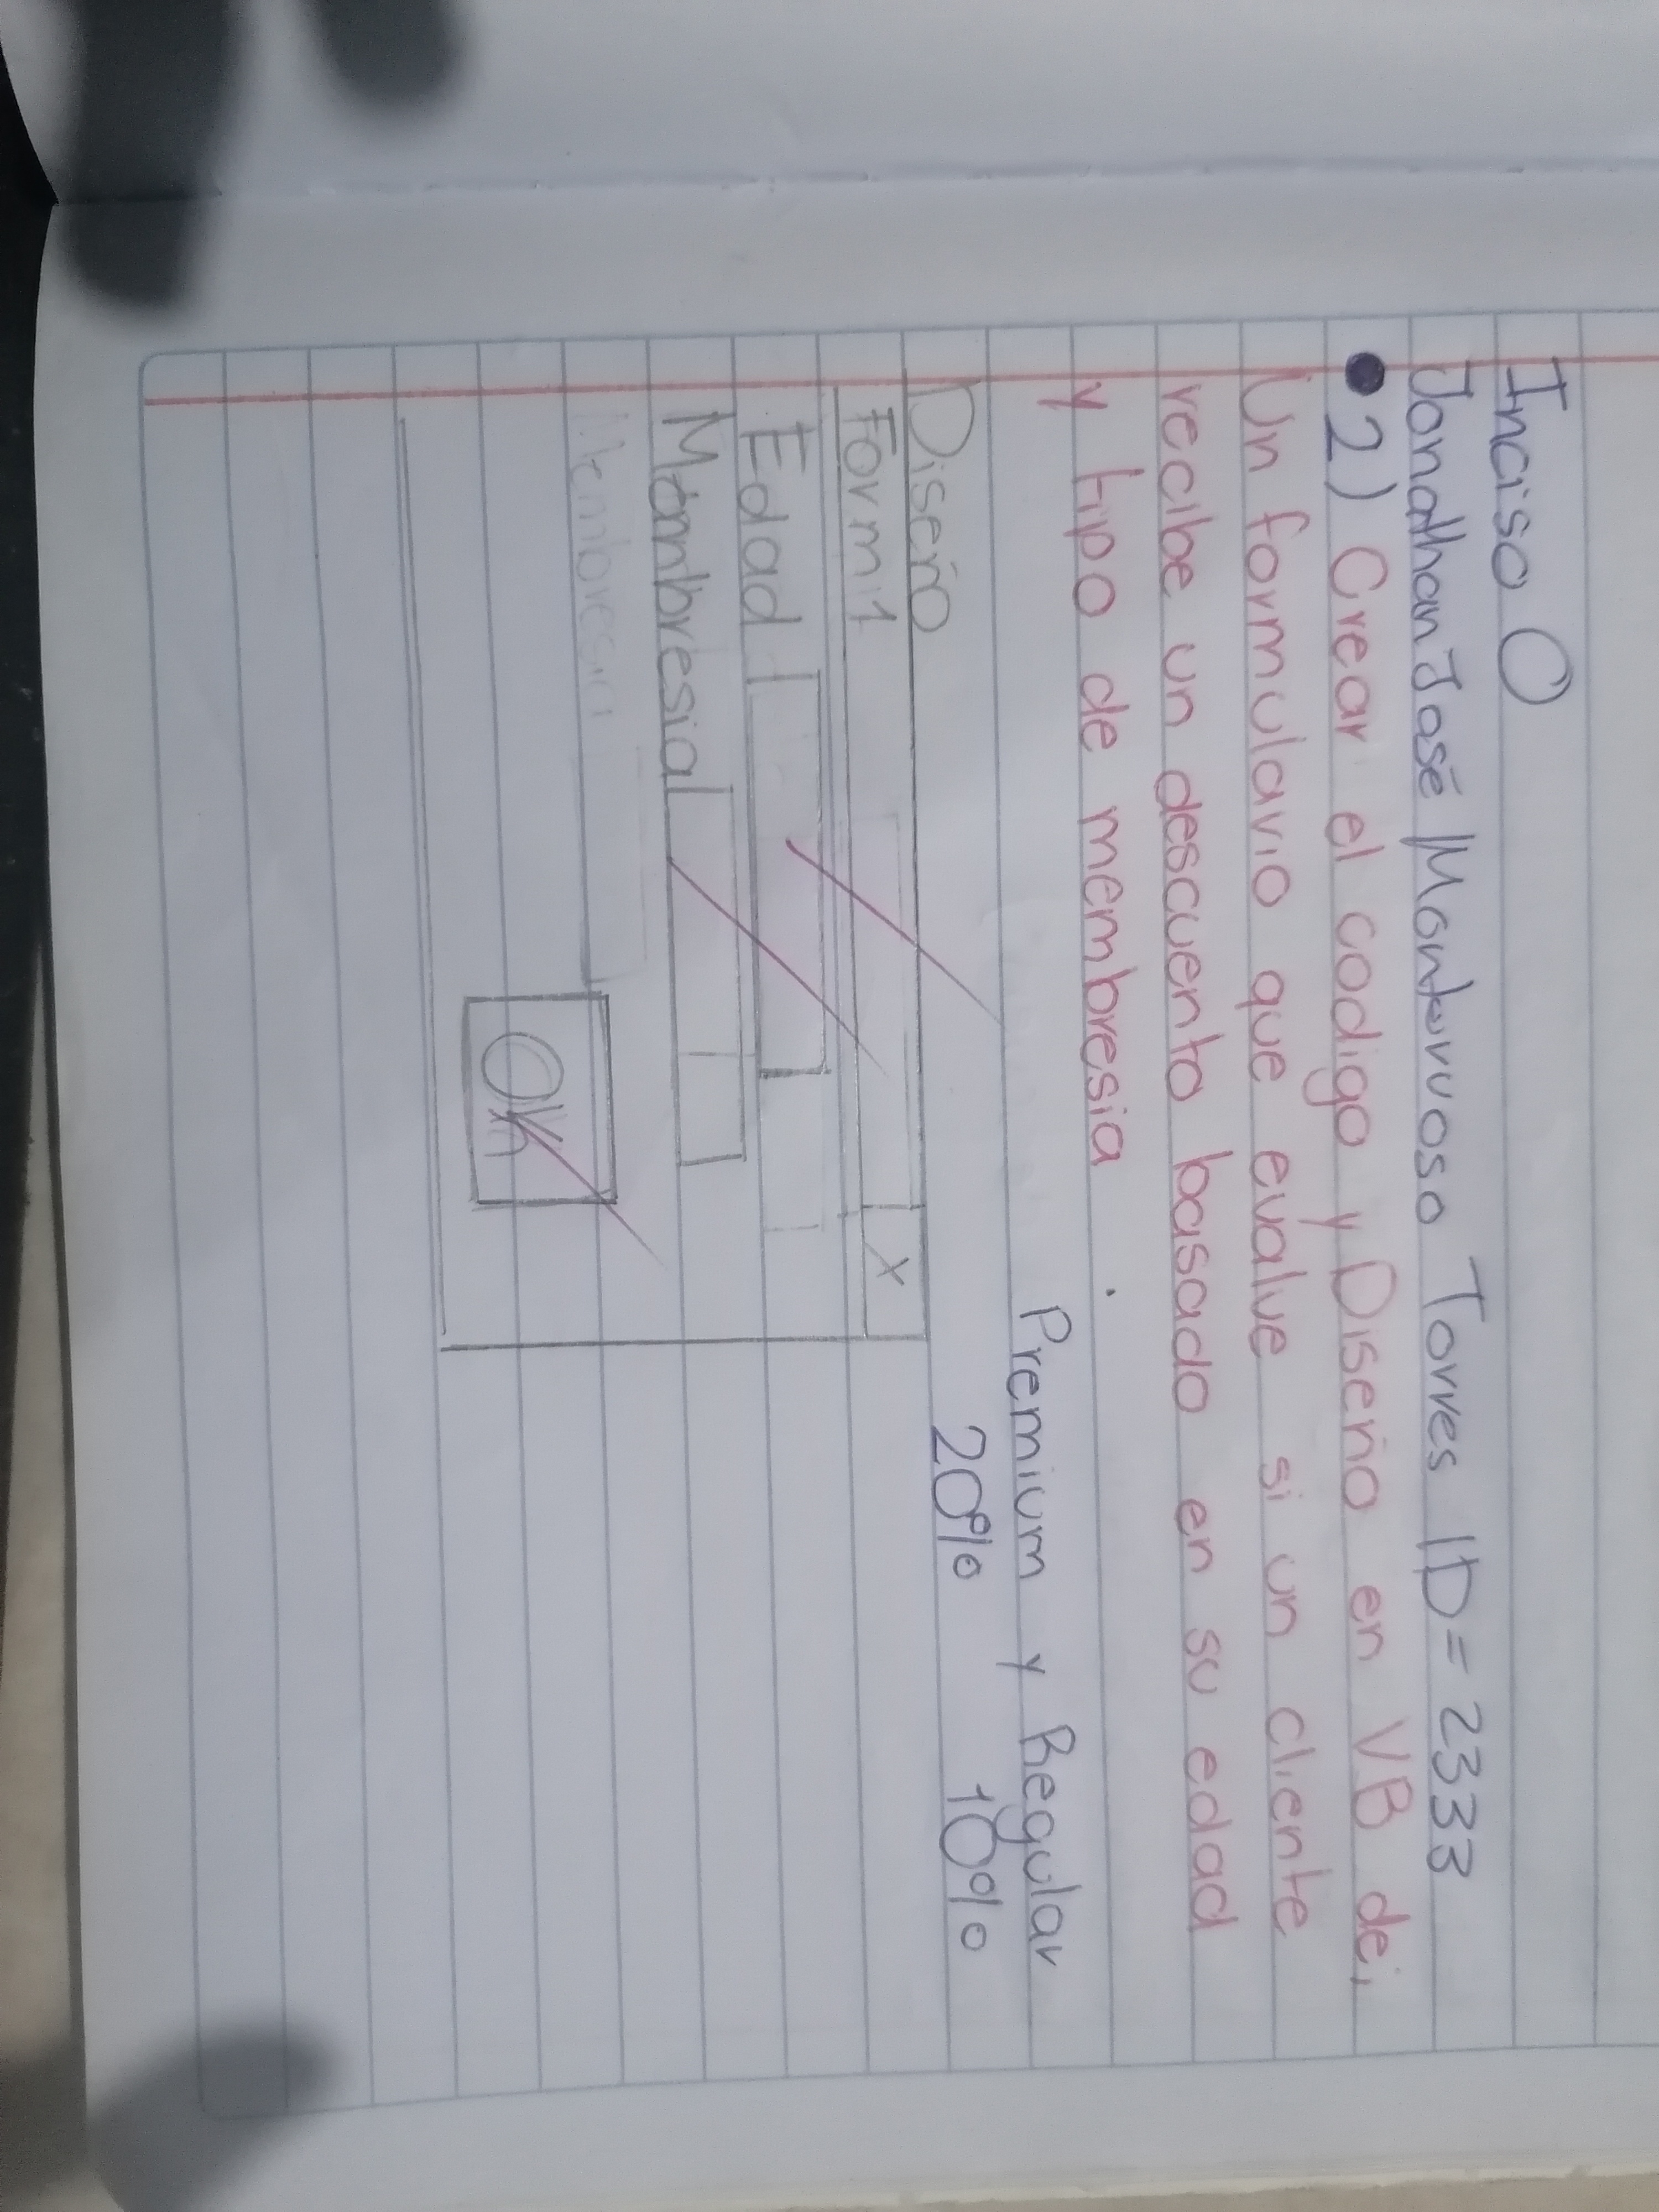 Inciso O
Jonathan José Monterruoso Torres ID = 2333
2) Crear el codigo y Diseño en VB de,
Un formulario que evalue si un cliente
recibe un descuento basado en su edad
y tipo de membresia
Premium y Regular
20% 10%
Diseño
Form1 X
Edad
Mombresia
Membresia
OK